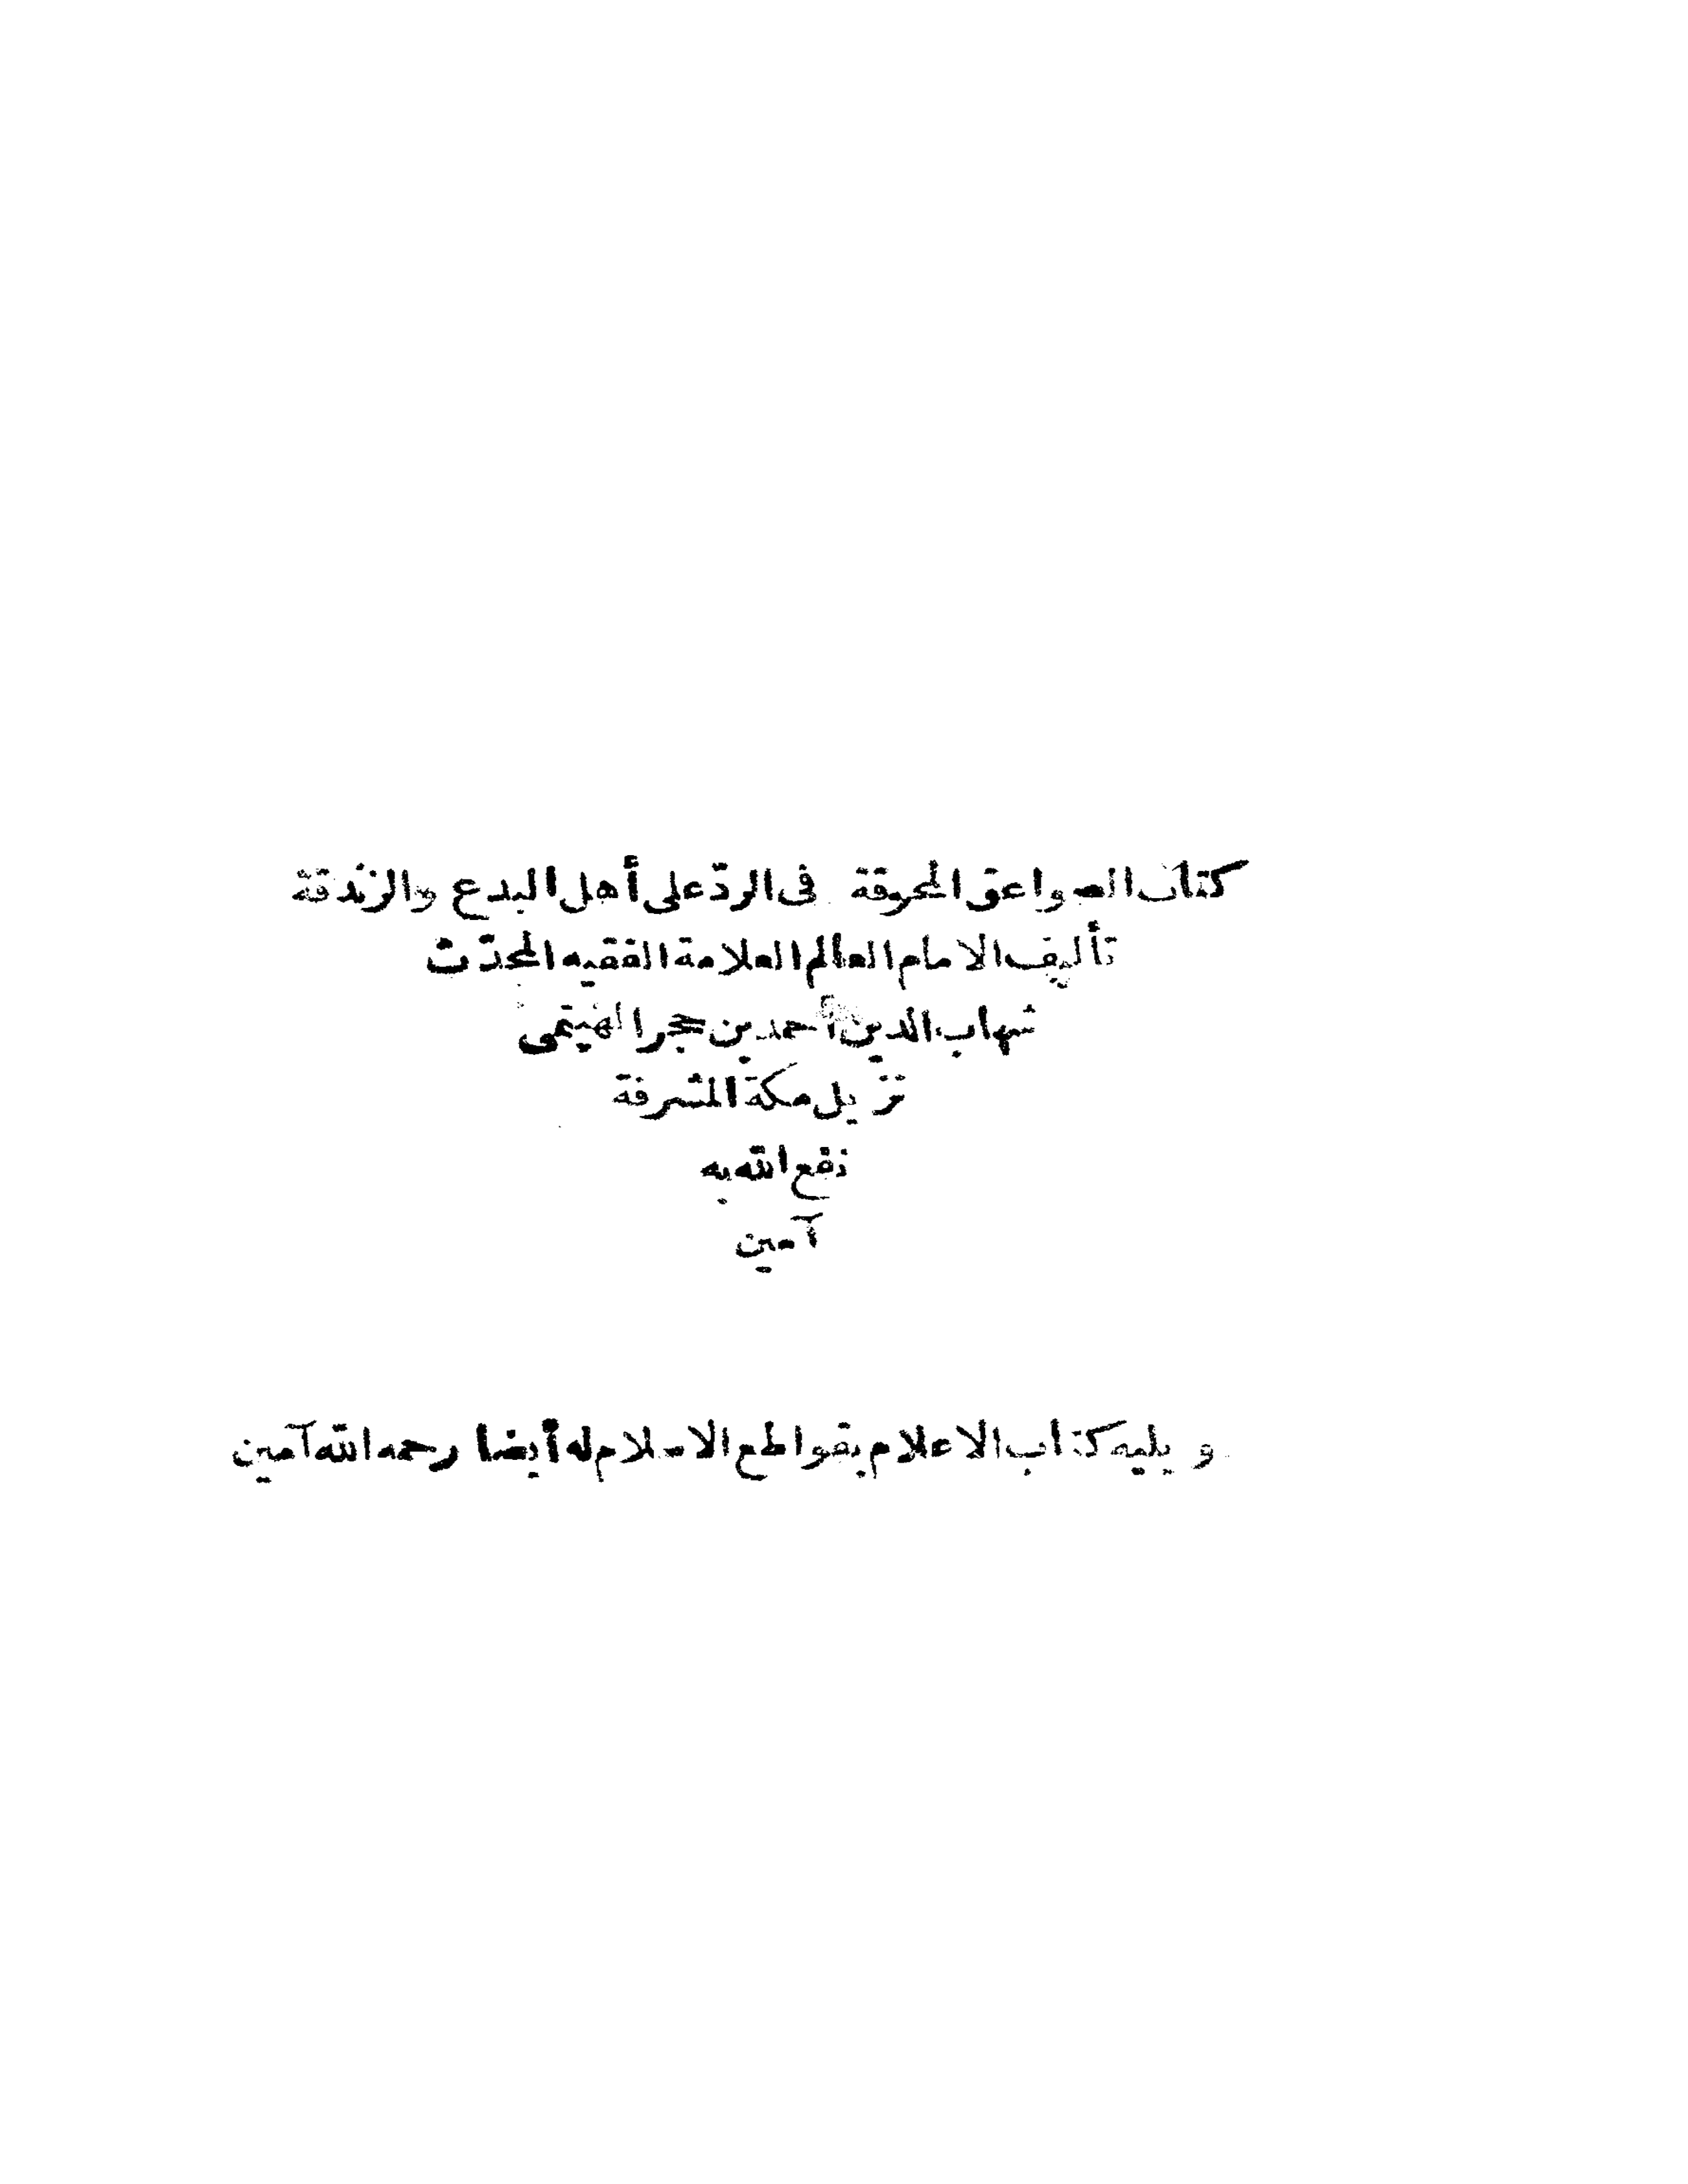 كتاب الصواعق المحرقة فى الردّ على أهل البدع والزندقة
تأليف الامام العالم العلامة الفقيه المحدّث
شهاب الدين أحمد بن حجر الهيتمى
نزيل مكة المشرفة
نفع الله به
آمين
ويليه كتاب الاعلام بقواطع الاسلام له أيضا رحمه الله آمين